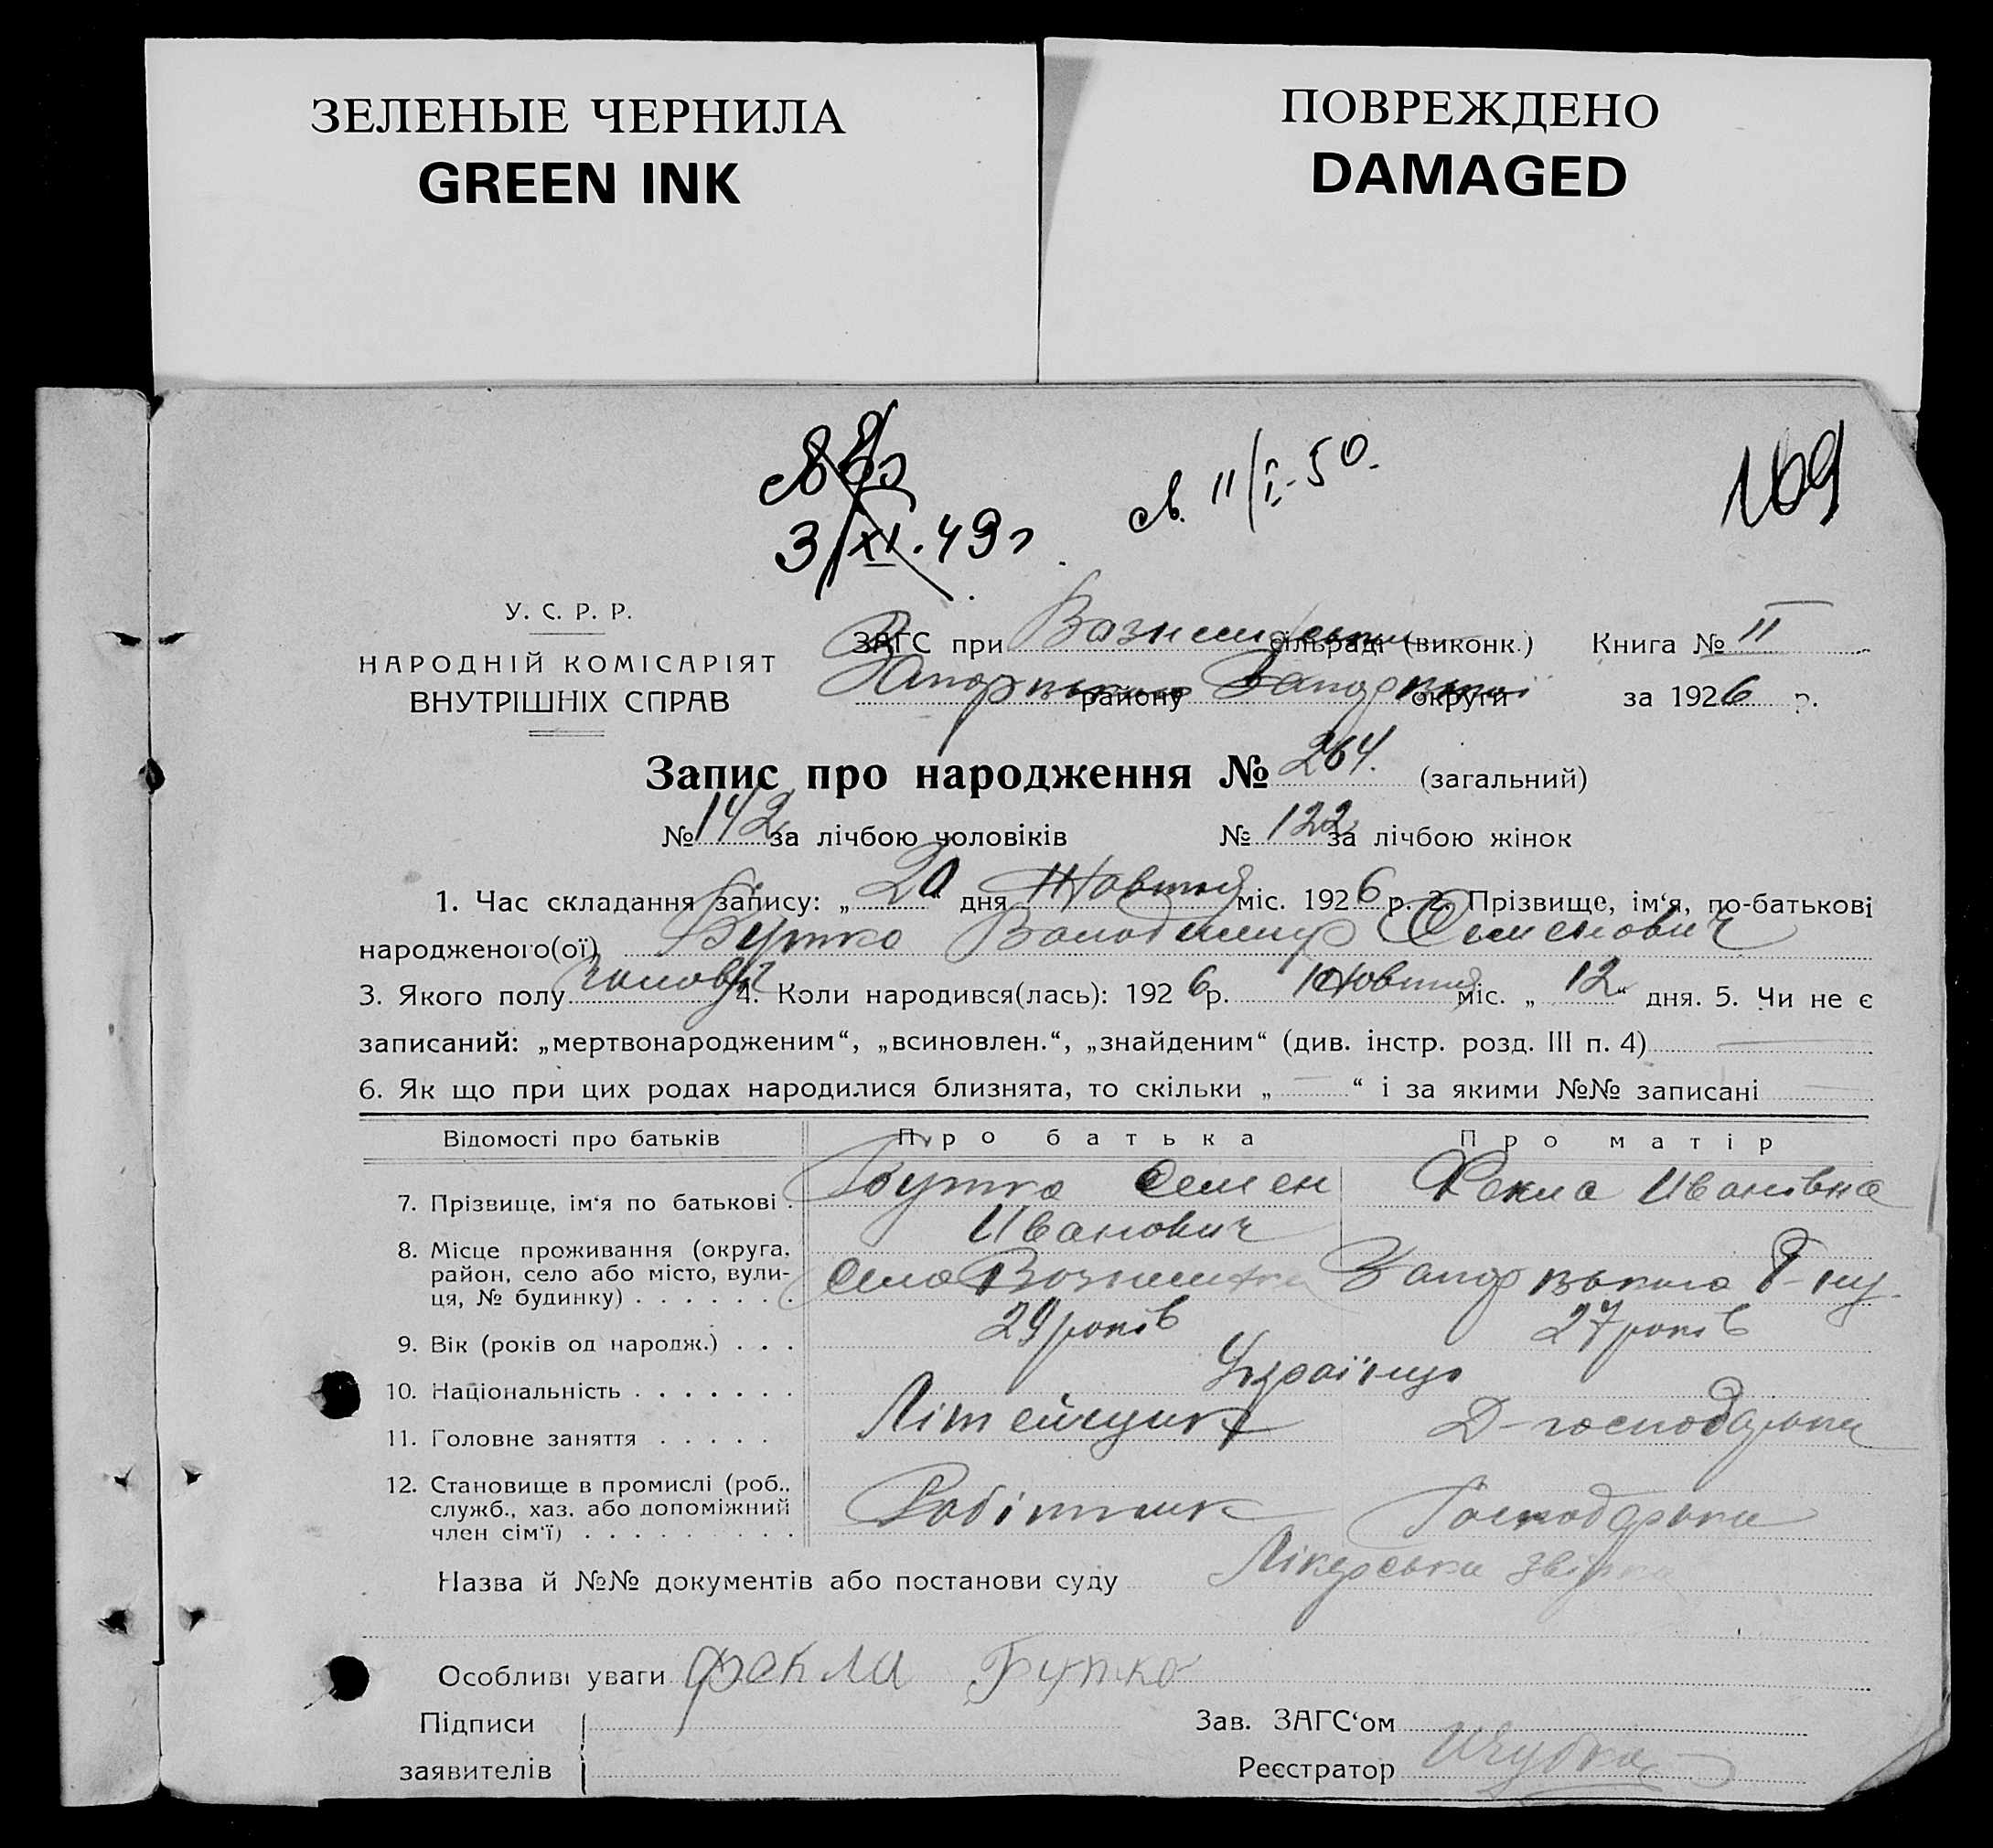 ЗЕЛЕНЫЕ ЧЕРНИЛА
GREEN INK
ПОВРЕЖДЕНО
DAMAGED
3/XI.49г
св. 11/I-50.
169
У. С. Р. Р.
НАРОДНІЙ КОМІСАРІЯТ
ВНУТРІШНІХ СПРАВ
ЗАГС при Вознесенськ сільраді (виконк.) Книга № II
Запорізького району Запорізької округи за 1926 р.
Запис про народження № 264. (загальний)
№ 142 за лічбою чоловіків № 122 за лічбою жінок
1. Час складання запису: „20“ дня Жовтня міс. 1926 р. 2. Прізвище, ім‘я, по-батькові
народженого(ої) Бутко Володимир Семенович
3. Якого полу чолов. 4. Коли народився(лась): 1926 р. Жовтня міс. „12“ дня. 5. Чи не є
записаний: „мертвонародженим“, „всиновлен.“, „знайденим“ (див. інстр. розд. III п. 4)
6. Як що при цих родах народилися близнята, то скільки „ — “ і за якими №№ записані
Відомості про батьків Про батька Про матір
7. Прізвище, ім‘я по батькові . Бутко Семен Иванович Фекла Иванівна
8. Місце проживання (округа, район, село або місто, вули-ця, № будинку) . . . . . . . Село Вознесенка Запорізького Р-ну
9. Вік (років од народж.) . . . 29 років 27 років
10. Національність . . . . . . . Українці
11. Головне заняття . . . . . Літейщик Д-господарка
12. Становище в промислі (роб., служб., хаз. або допоміжний член сім‘ї) . . . . . . . . . Робітник Господарка
Назва й №№ документів або постанови суду Лікарська
Особливі уваги Фекла Бутко
Підписи
заявителів
Зав. ЗАГС‘ом
Реєстратор